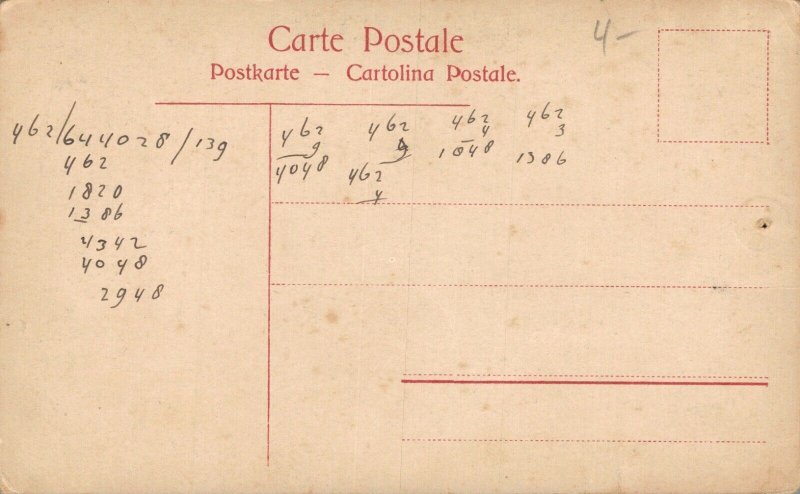 Carte Postale
4-
Postkarte — Cartolina Postale.
462/644028/139
462
1820
1386
4342
4048
2948
462
9
4048
462
9
462
4
462
4
1848
462
3
1386